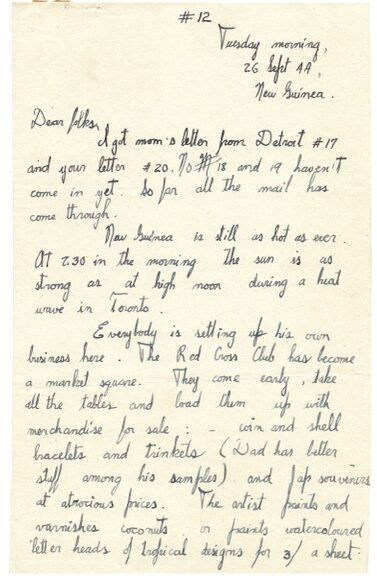 #12
Tuesday morning,
26 Sept 44,
New Guinea.
Dear folks,
I got mom's letter from Detroit #17
and your letter #20. No # 18 and 19 haven't
come in yet. So far all the mail has
come through.
New Guinea is still as hot as ever.
At 7.30 in the morning the sun is as
strong as at high noon during a heat
wave in Toronto.
Everybody is setting up his own
business here. The Red Cross Club has become
a market square. They come early, take
all the tables and load them up with
merchandise for sale : - coin and shell
bracelets and trinkets (Dad has better
stuff among his samples) and Jap souvenirs
at atrocious prices. The artist paints and
varnishes coconuts or paints watercoloured
letter heads of tropical designs for 3/ a sheet.